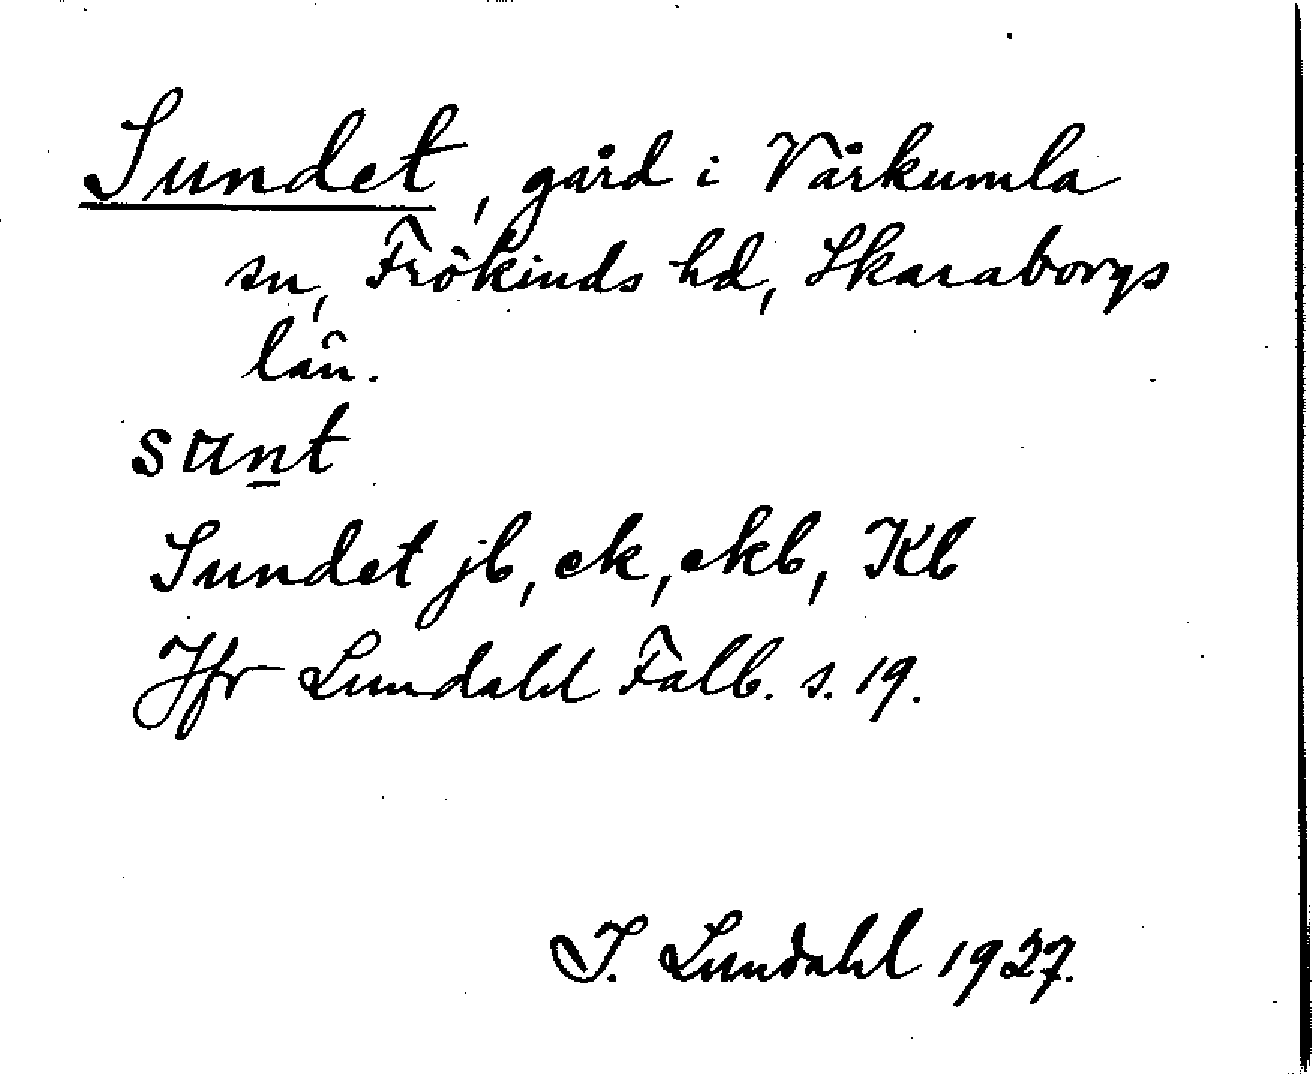 Sundet, gård i Vårkumla
sn, Frökinds hd, Skaraborgs
län.
sunt
Sundet jb, ek, ekb, Kb
Jfr Lundahl Falb. s. 19.
I. Lundahl 1927.